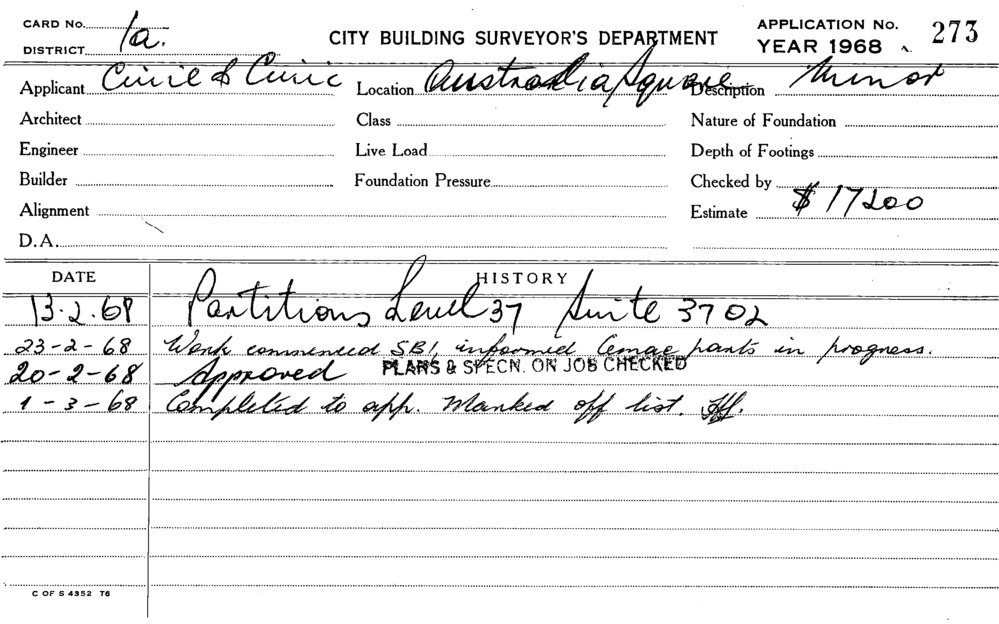 CARD No. 1a. CITY BUILDING SURVEYOR'S DEPARTMENT APPLICATION No. 273
DISTRICT YEAR 1968
Applicant Civil & Civic Location Australia Square Description Minor
Architect Class Nature of Foundation
Engineer Live Load Depth of Footings
Builder Foundation Pressure Checked by
Alignment Estimate $17200
D.A.
DATE HISTORY
13.2.68 Partitions Level 37 Suite 3702
23-2-68 Work commenced SBI, informed parts in progress.
20-2-68 Approved PLANS & SPECN. ON JOB CHECKED
1-3-68 Completed to app. Marked off list.
C OF S 4352 T6